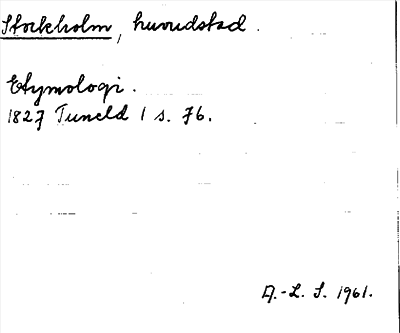 Stockholm, huvudstad.
Etymologi.
1827 Tuneld 1 s. 76.
A.-L. S. 1961.